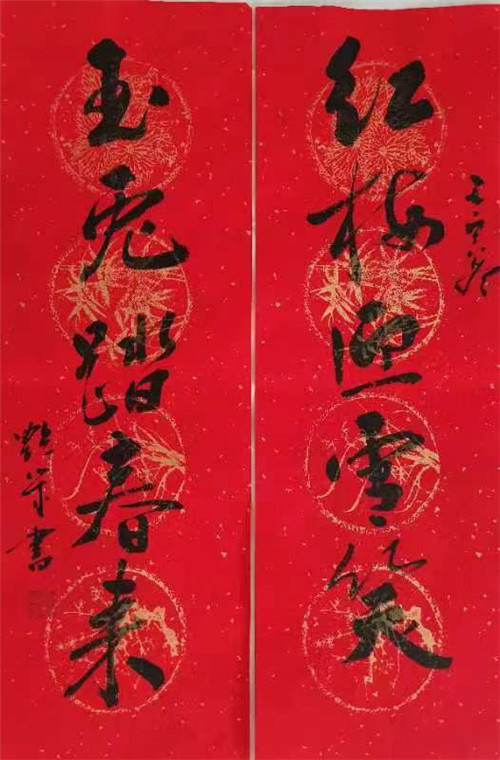 壬寅
红梅迎雪笑
玉兔踏春来
书